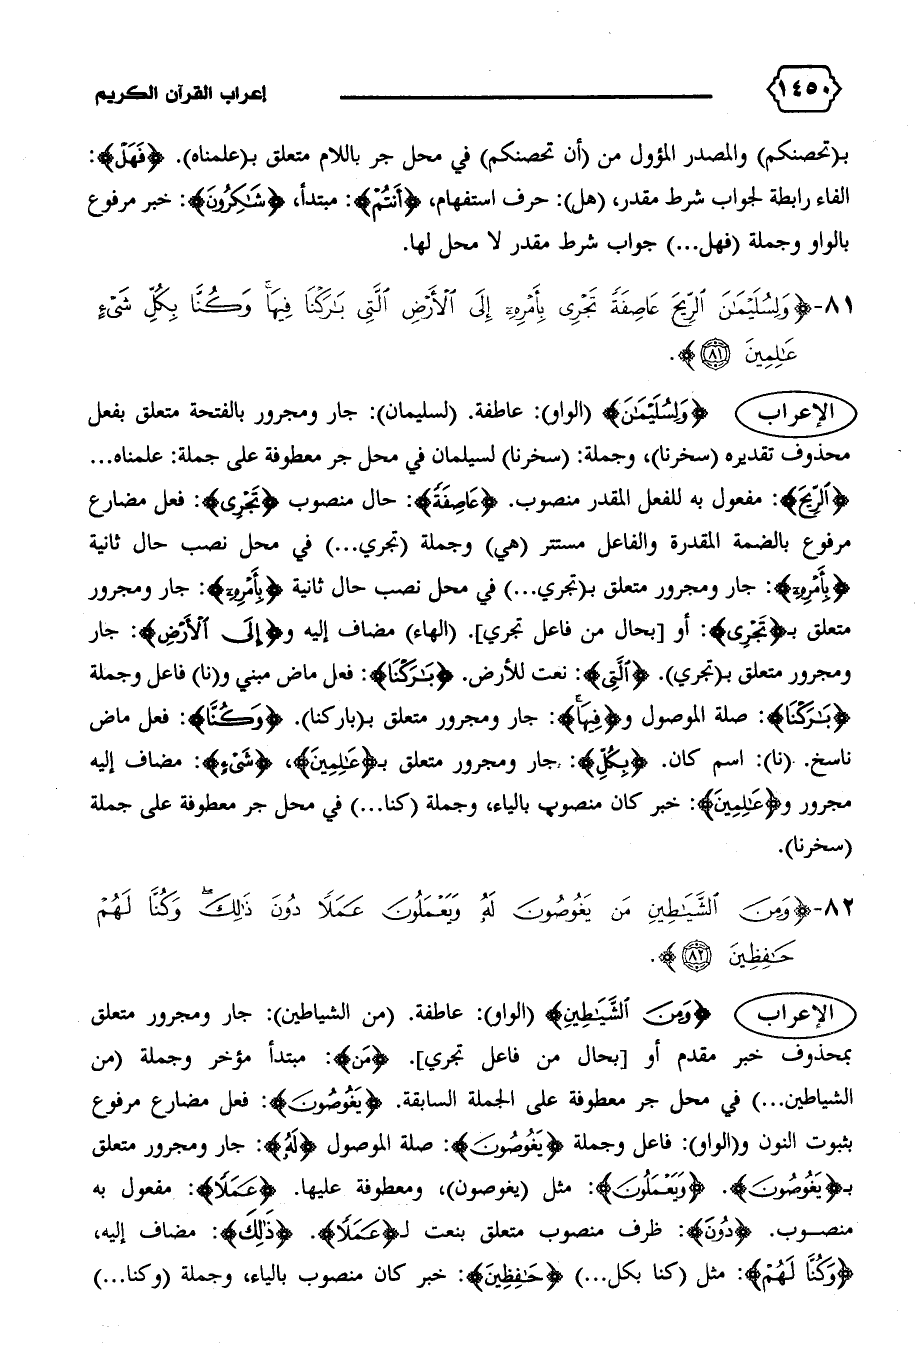 ١٤٥٠ إعراب القرآن الكريم
بـ(تحصنكم) والمصدر المؤول من (أن تحصنكم) في محل جر باللام متعلق بـ(علمناه). ﴿فَهَلْ﴾:
الفاء رابطة لجواب شرط مقدر، (هل): حرف استفهام، ﴿أَنتُمْ﴾: مبتدأ، ﴿شَاكِرُونَ﴾: خبر مرفوع
بالواو وجملة (فهل...) جواب شرط مقدر لا محل لها.
٨١-﴿وَلِسُلَيْمَٰنَ ٱلرِّيحَ عَاصِفَةً تَجْرِى بِأَمْرِهِۦٓ إِلَى ٱلْأَرْضِ ٱلَّتِى بَٰرَكْنَا فِيهَا ۚ وَكُنَّا بِكُلِّ شَىْءٍ
عَٰلِمِينَ ٨١﴾.
الإعراب ﴿وَلِسُلَيْمَٰنَ﴾ (الواو): عاطفة. (لسليمان): جار ومجرور بالفتحة متعلق بفعل
محذوف تقديره (سخرنا)، وجملة: (سخرنا) لسيلمان في محل جر معطوفة على جملة: علمناه...
﴿ٱلرِّيحَ﴾: مفعول به للفعل المقدر منصوب. ﴿عَاصِفَةً﴾: حال منصوب ﴿تَجْرِى﴾: فعل مضارع
مرفوع بالضمة المقدرة والفاعل مستتر (هي) وجملة (تجري...) في محل نصب حال ثانية
﴿بِأَمْرِهِۦٓ﴾: جار ومجرور متعلق بـ(تجري...) في محل نصب حال ثانية ﴿بِأَمْرِهِۦٓ﴾: جار ومجرور
متعلق بـ﴿تَجْرِى﴾: أو [بحال من فاعل تجري]. (الهاء) مضاف إليه و﴿إِلَى ٱلْأَرْضِ﴾: جار
ومجرور متعلق بـ(تجري). ﴿ٱلَّتِى﴾: نعت للأرض. ﴿بَٰرَكْنَا﴾: فعل ماض مبني و(نا) فاعل وجملة
﴿بَٰرَكْنَا﴾: صلة الموصول و﴿فِيهَا ۚ﴾: جار ومجرور متعلق بـ(باركنا). ﴿وَكُنَّا﴾: فعل ماض
ناسخ. (نا): اسم كان. ﴿بِكُلِّ﴾: جار ومجرور متعلق بـ﴿عَٰلِمِينَ﴾، ﴿شَىْءٍ﴾: مضاف إليه
مجرور و﴿عَٰلِمِينَ﴾: خبر كان منصوب بالياء، وجملة (كنا...) في محل جر معطوفة على جملة
(سخرنا).
٨٢-﴿وَمِنَ ٱلشَّيَٰطِينِ مَن يَغُوصُونَ لَهُۥ وَيَعْمَلُونَ عَمَلًا دُونَ ذَٰلِكَ ۖ وَكُنَّا لَهُمْ
حَٰفِظِينَ ٨٢﴾.
الإعراب ﴿وَمِنَ ٱلشَّيَٰطِينِ﴾ (الواو): عاطفة. (من الشياطين): جار ومجرور متعلق
بمحذوف خبر مقدم أو [بحال من فاعل تجري]. ﴿مَن﴾: مبتدأ مؤخر وجملة (من
الشياطين...) في محل جر معطوفة على الجملة السابقة. ﴿يَغُوصُونَ﴾: فعل مضارع مرفوع
بثبوت النون و(الواو): فاعل وجملة ﴿يَغُوصُونَ﴾: صلة الموصول ﴿لَهُۥ﴾: جار ومجرور متعلق
بـ﴿يَغُوصُونَ﴾. ﴿وَيَعْمَلُونَ﴾: مثل (يغوصون)، ومعطوفة عليها. ﴿عَمَلًا﴾: مفعول به
منصوب. ﴿دُونَ﴾: ظرف منصوب متعلق بنعت لـ﴿عَمَلًا﴾. ﴿ذَٰلِكَ﴾: مضاف إليه،
﴿وَكُنَّا لَهُمْ﴾: مثل (كنا بكل...) ﴿حَٰفِظِينَ﴾: خبر كان منصوب بالياء، وجملة (وكنا...)